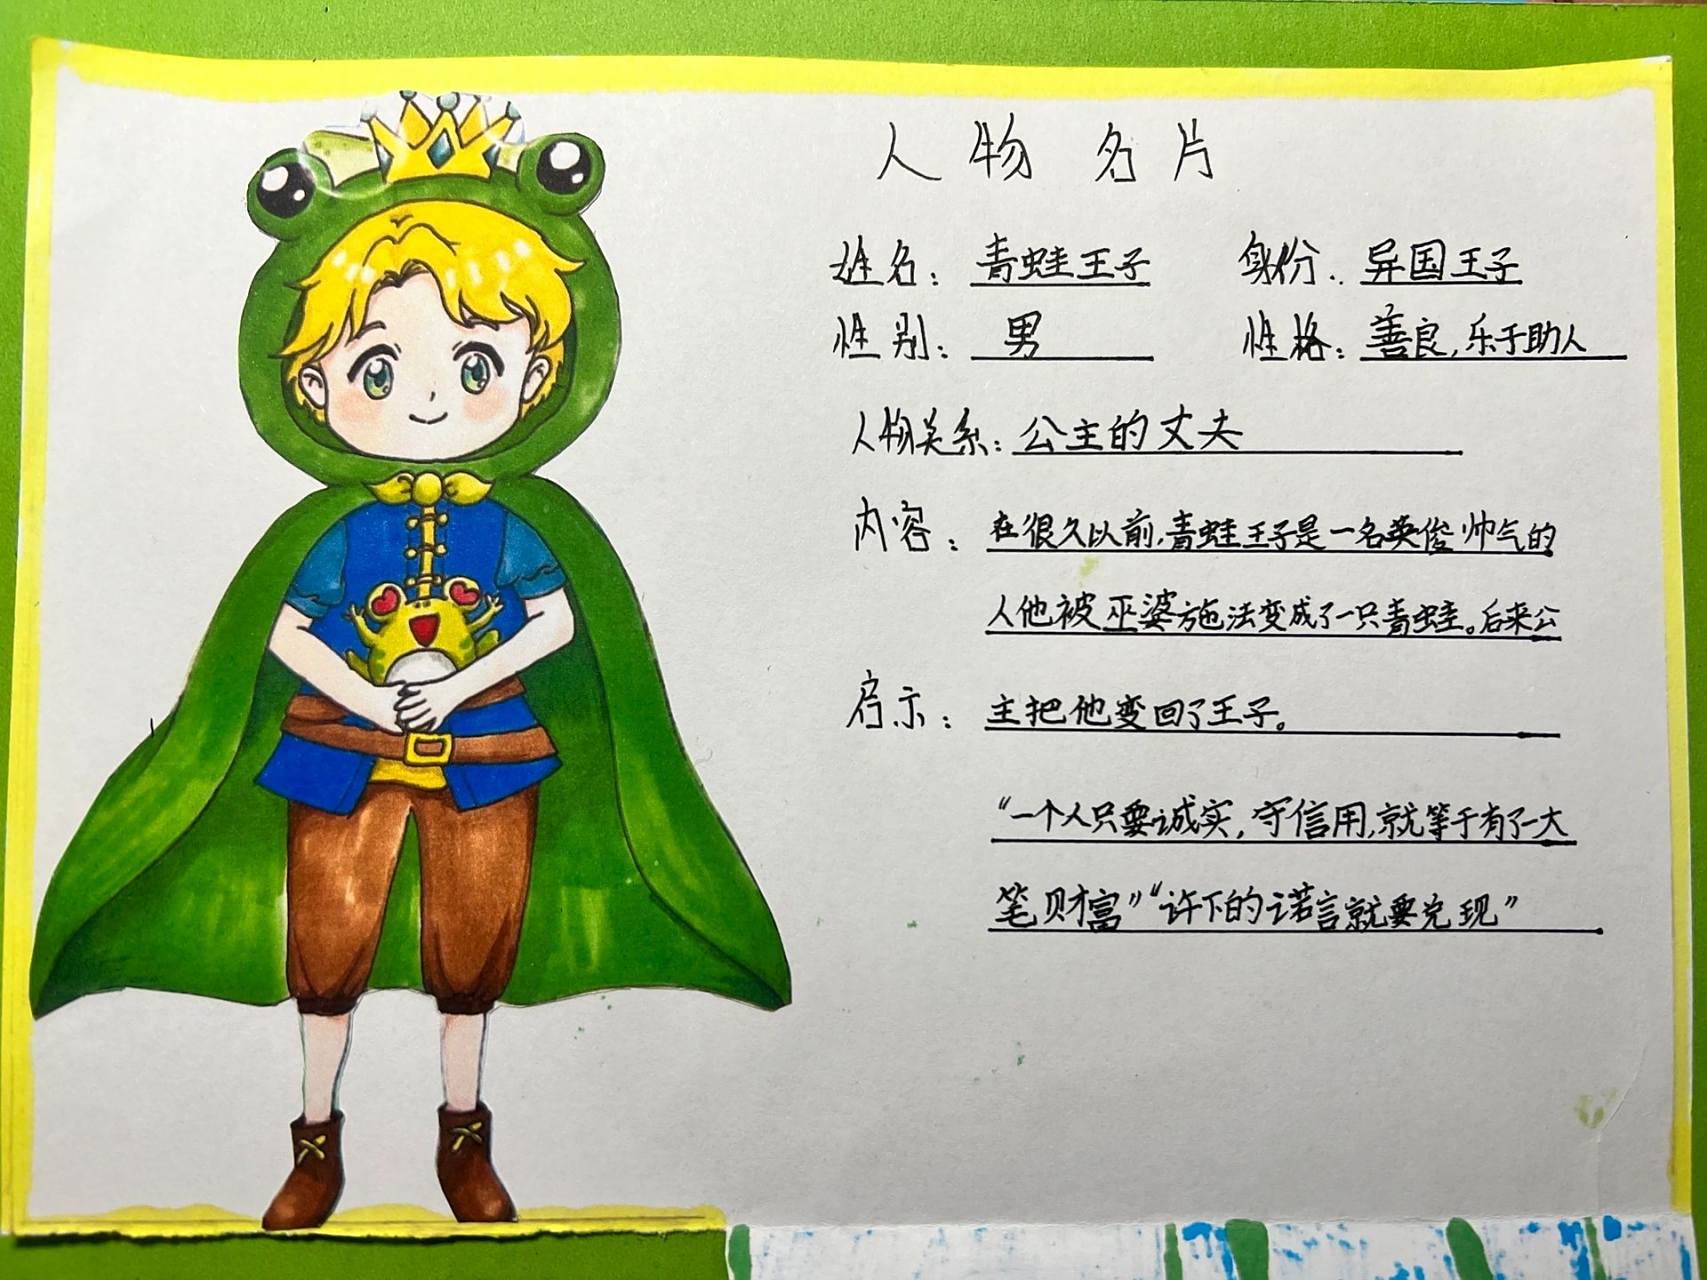 人物名片
姓名：青蛙王子 身份：异国王子
性别：男 性格：善良，乐于助人
人物关系：公主的丈夫
内容：在很久以前，青蛙王子是一名英俊帅气的
人他被巫婆施法变成了一只青蛙。后来公
启示：主把他变回了王子。
“一个人只要诚实，守信用，就等于有了一大
笔财富”“许下的诺言就要兑现”